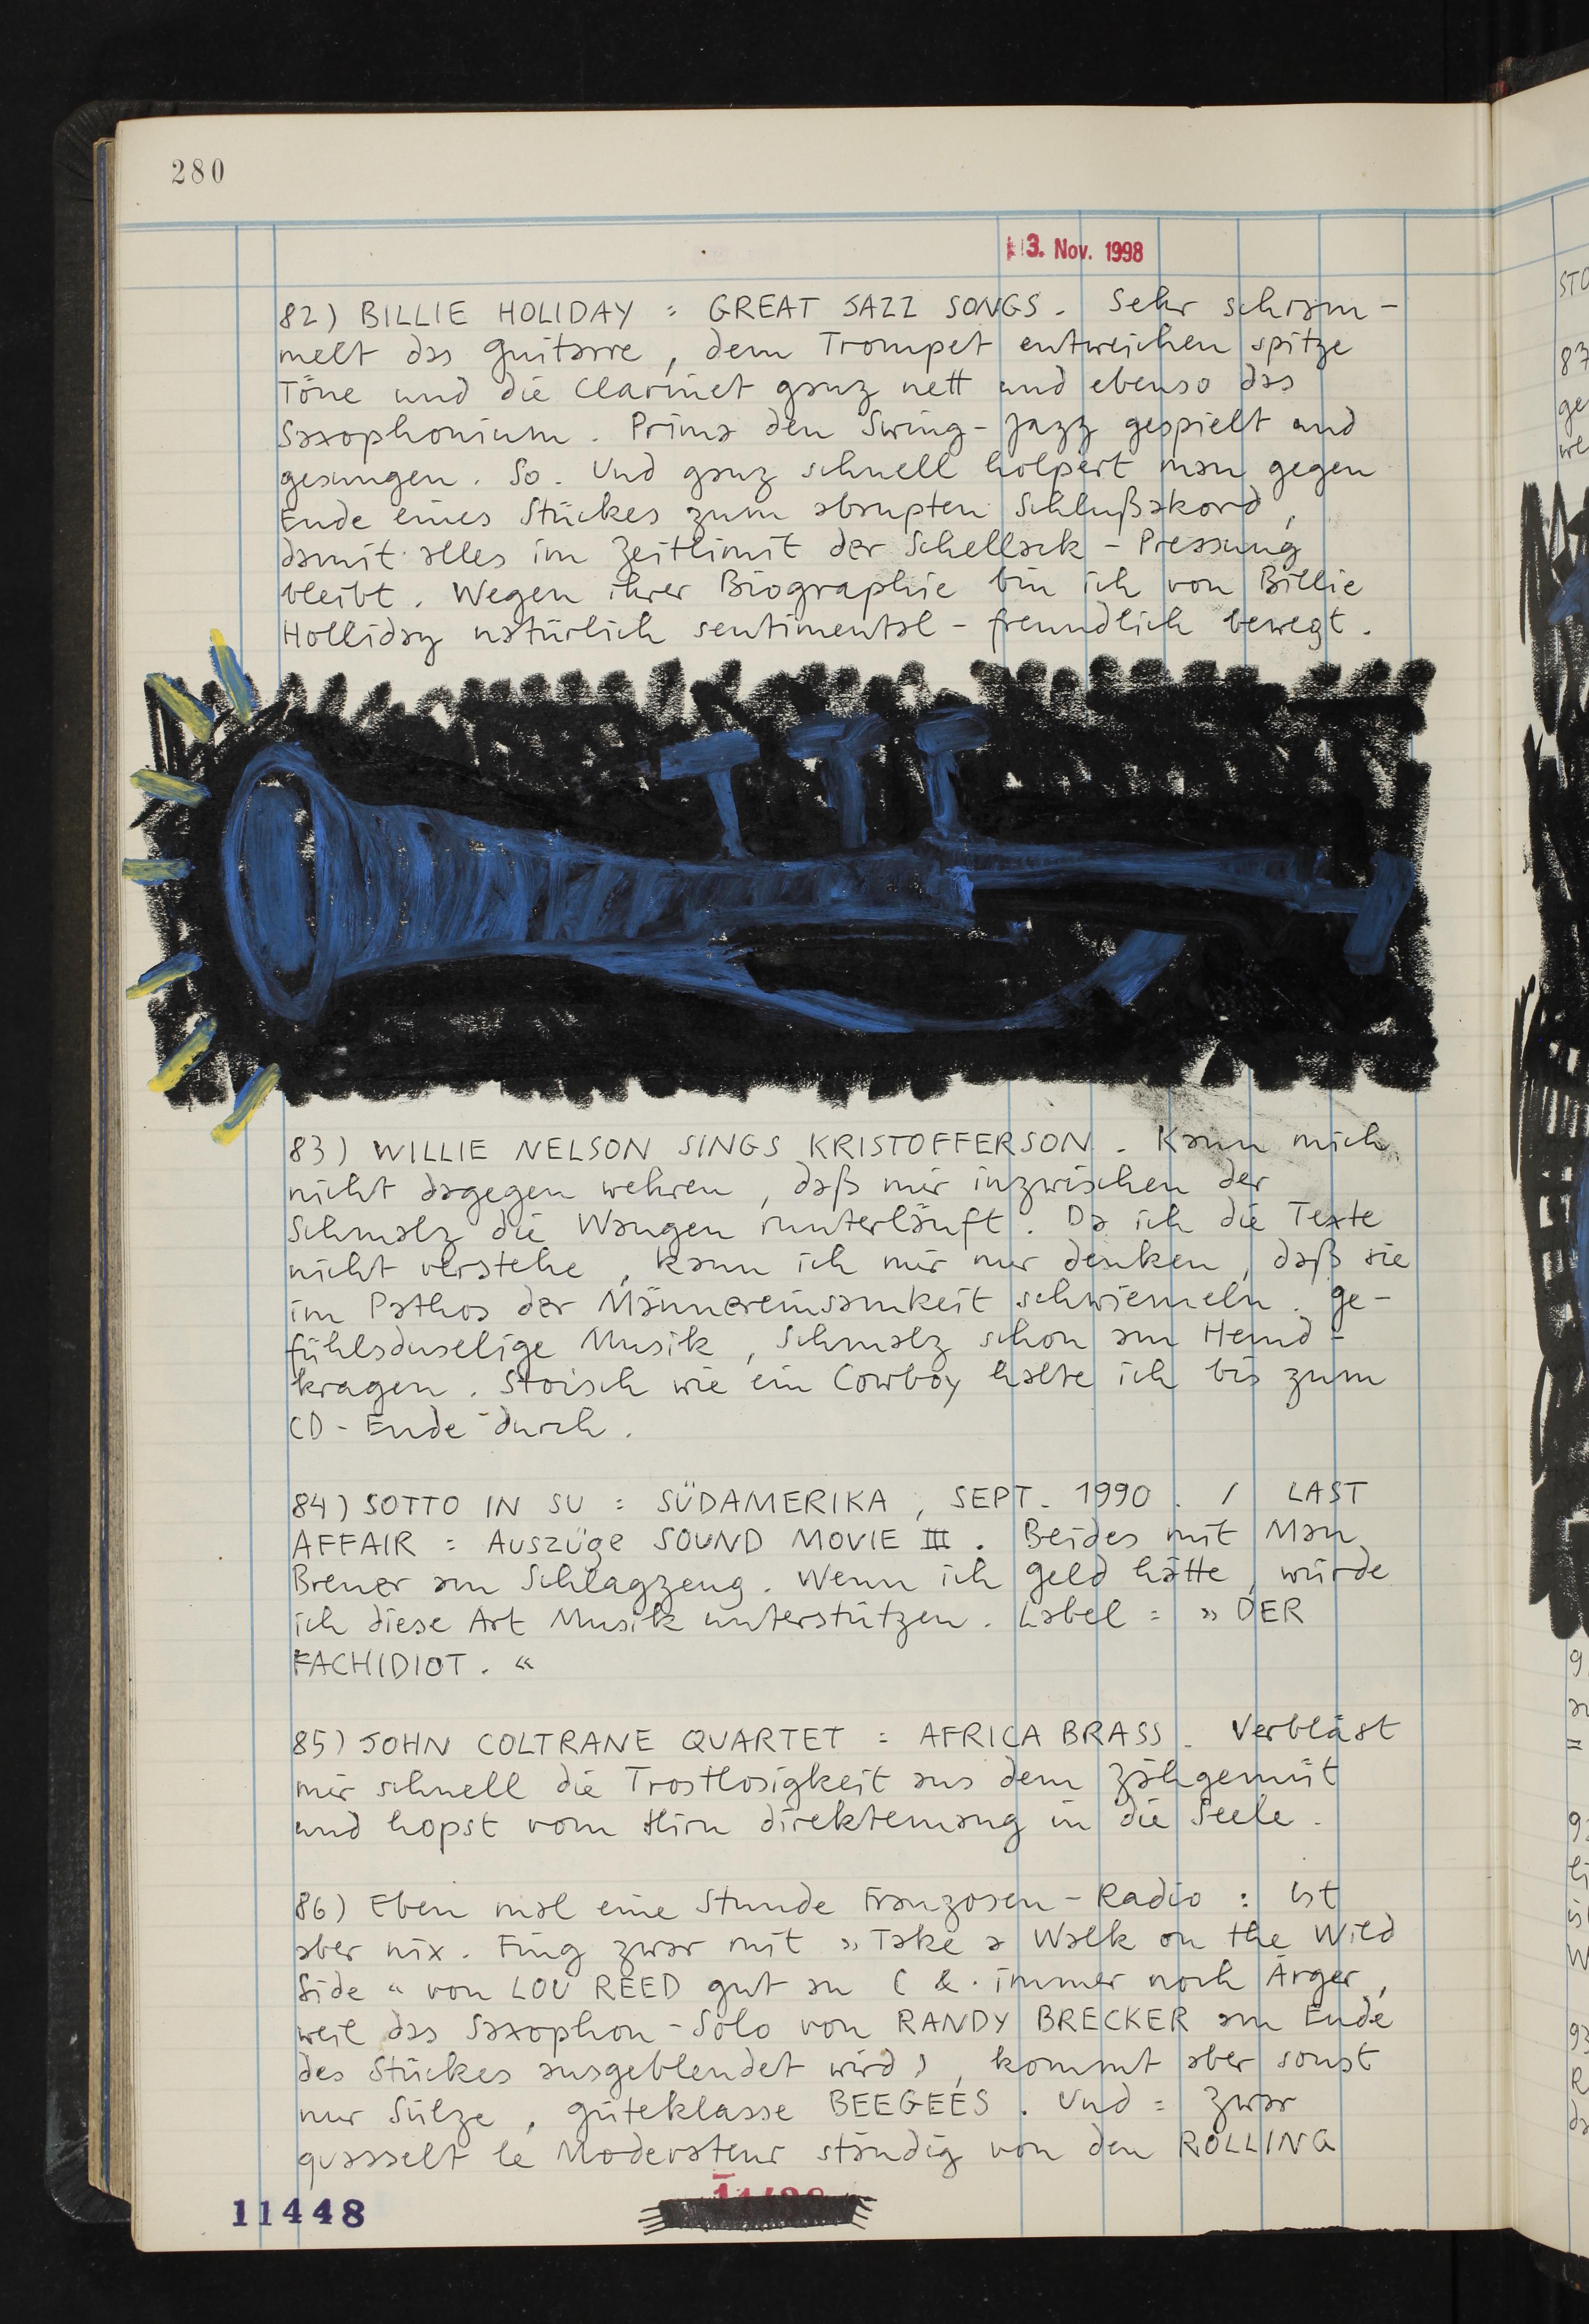 280
3. Nov. 1998
82) BILLIE HOLIDAY = GREAT JAZZ SONGS. Sehr schram-
melt das Guitarre, dem Trompet entweichen spitze
Töne und die Clarinet ganz nett und ebenso das
Saxophonium. Prima den Swing-Jazz gespielt und
gesungen. So. Und ganz schnell holpert man gegen
Ende eines Stückes zum abrupten Schlußakord,
damit alles im Zeitlimit der Schellack-Pressung
bleibt. Wegen ihrer Biographie bin ich von Billie
Holliday natürlich sentimental-freundlich bewegt.
83) WILLIE NELSON SINGS KRISTOFFERSON. Kann mich
nicht dagegen wehren, daß mir inzwischen der
Schmalz die Wangen runterläuft. Da ich die Texte
nicht verstehe, kann ich mir nur denken, daß sie
im Pathos der Männereinsamkeit schwiemeln. Ge-
fühlsduselige Musik, Schmalz schon am Hemd-
kragen. Stoisch wie ein Cowboy halte ich bis zum
CD-Ende durch.
84) SOTTO IN SU = SÜDAMERIKA, SEPT. 1990. / LAST
AFFAIR = Auszüge SOUND MOVIE III. Beides mit Man
Breuer am Schlagzeug. Wenn ich Geld hätte, würde
ich diese Art Musik unterstützen. Label = »DER
FACHIDIOT.«
85) JOHN COLTRANE QUARTET = AFRICA BRASS. Verbläst
mir schnell die Trostlosigkeit aus dem Zähgemüt
und hopst vom Hirn direktemang in die Seele.
86) Eben mal eine Stunde Franzosen-Radio: Ist
aber nix. Fing zwar mit »Take a Walk on the Wild
Side« von LOU REED gut an (&. immer noch Ärger,
weil das Saxophon-Solo von RANDY BRECKER am Ende
des Stückes ausgeblendet wird), kommt aber sonst
nur Sülze, Güteklasse BEEGEES. Und = zwar
quasselt le Moderateur ständig von den ROLLING
11448